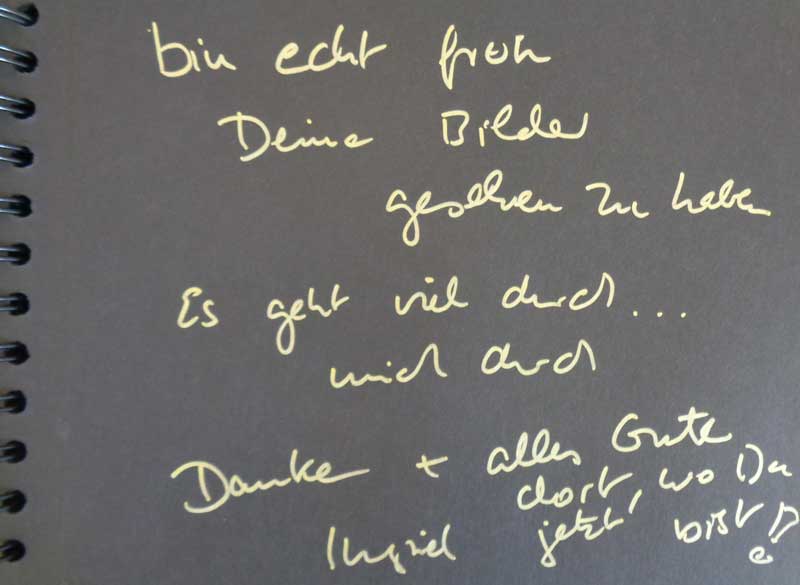 bin echt froh
Deine Bilder
gesehen zu haben
Es geht viel durch...
mich durch
Danke + alles Gute
dort, wo Du
Ingrid jetzt bist!